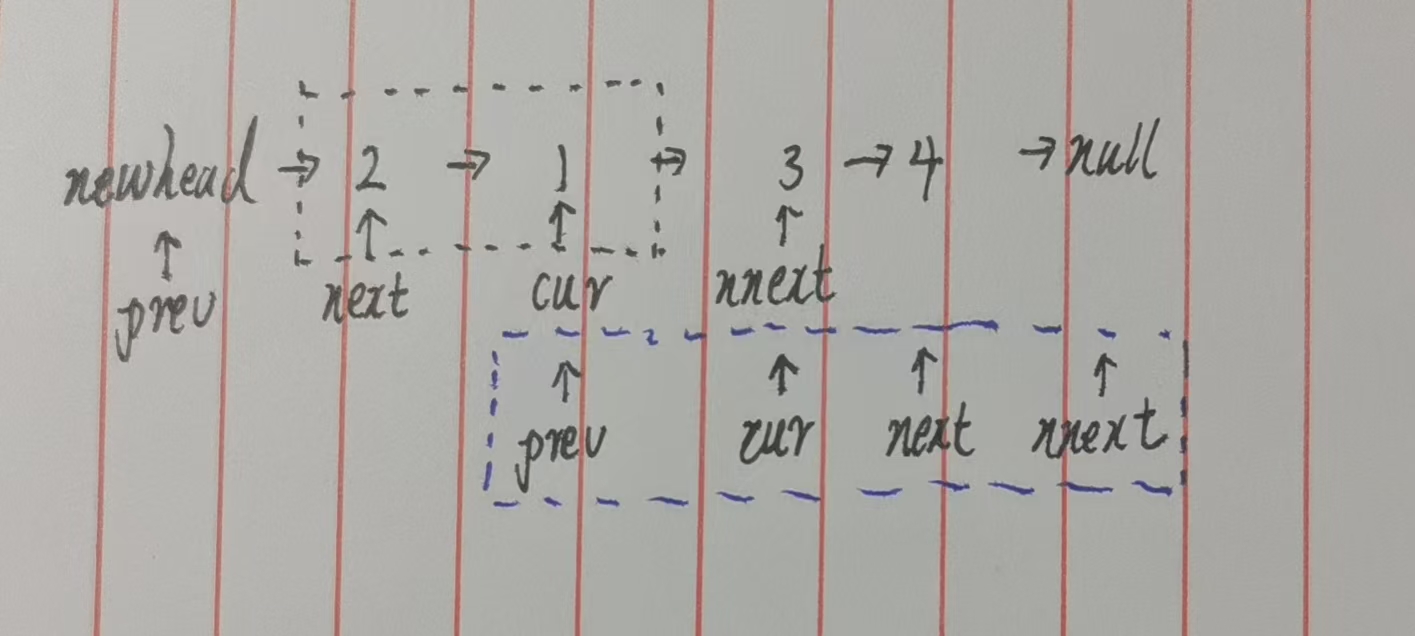 newhead → 2 → 1 → 3 → 4 → null
↑ ↑ ↑ ↑
prev next cur nnext
↑ ↑ ↑ ↑
prev cur next nnext